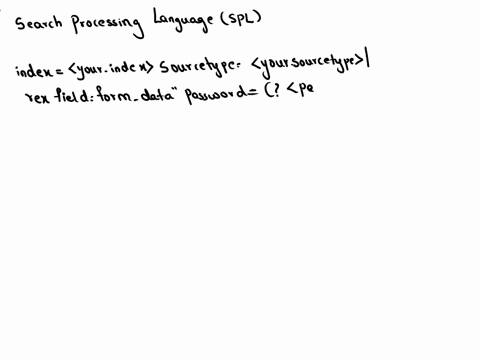 Search Processing Language (SPL)
index = <your_index> sourcetype= <yoursourcetype>|
rex field=form_data" password= (? <pa